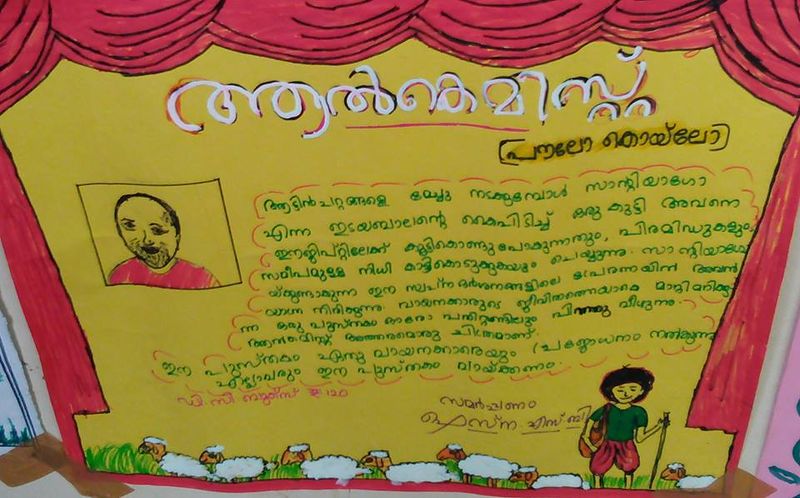 ആൽകെമിസ്റ്റ്
(പൗലോ കൊയ്ലോ)
ആട്ടിൻപറ്റങ്ങളെ മേച്ചു നടക്കുമ്പോൾ സാന്റിയാഗോ
എന്ന ഇടയബാലന്റെ കൈപിടിച്ച് ഒരു കുട്ടി അവനെ
ഈജിപ്റ്റിലേക്ക് കൂട്ടികൊണ്ടുപോകുന്നതും, പിരമിഡുകളും
സമീപമുളള നിധി കാട്ടികൊടുക്കുകയും ചെയ്യുന്നു. സാന്റിയാഗോ
യ്ക്കുണ്ടാകുന്ന ഈ സ്വപ്നദർശനങ്ങളിലെ പ്രേരണയിൽ അവൻ
യാത്ര തിരിക്കുന്നു. വായനക്കാരുടെ ജീവിതത്തെയാകെ മാറ്റിമറിക്കു
ന്ന ഒരു പുസ്തകം ഓരോ പതിറ്റാണ്ടിലും പിറന്നു വീഴുന്നു.
ആൽകെമിസ്റ്റ് അത്തരമൊരു
ഈ പുസ്തകം ഏതു വായനക്കാരെയും പ്രചോദനം നൽകുന്നു
എല്ലാവരും ഈ പുസ്തകം വായ്ക്കണം
ഡി.സി ബുക്സ് 120
സമർപ്പണം
എസ്.ബി